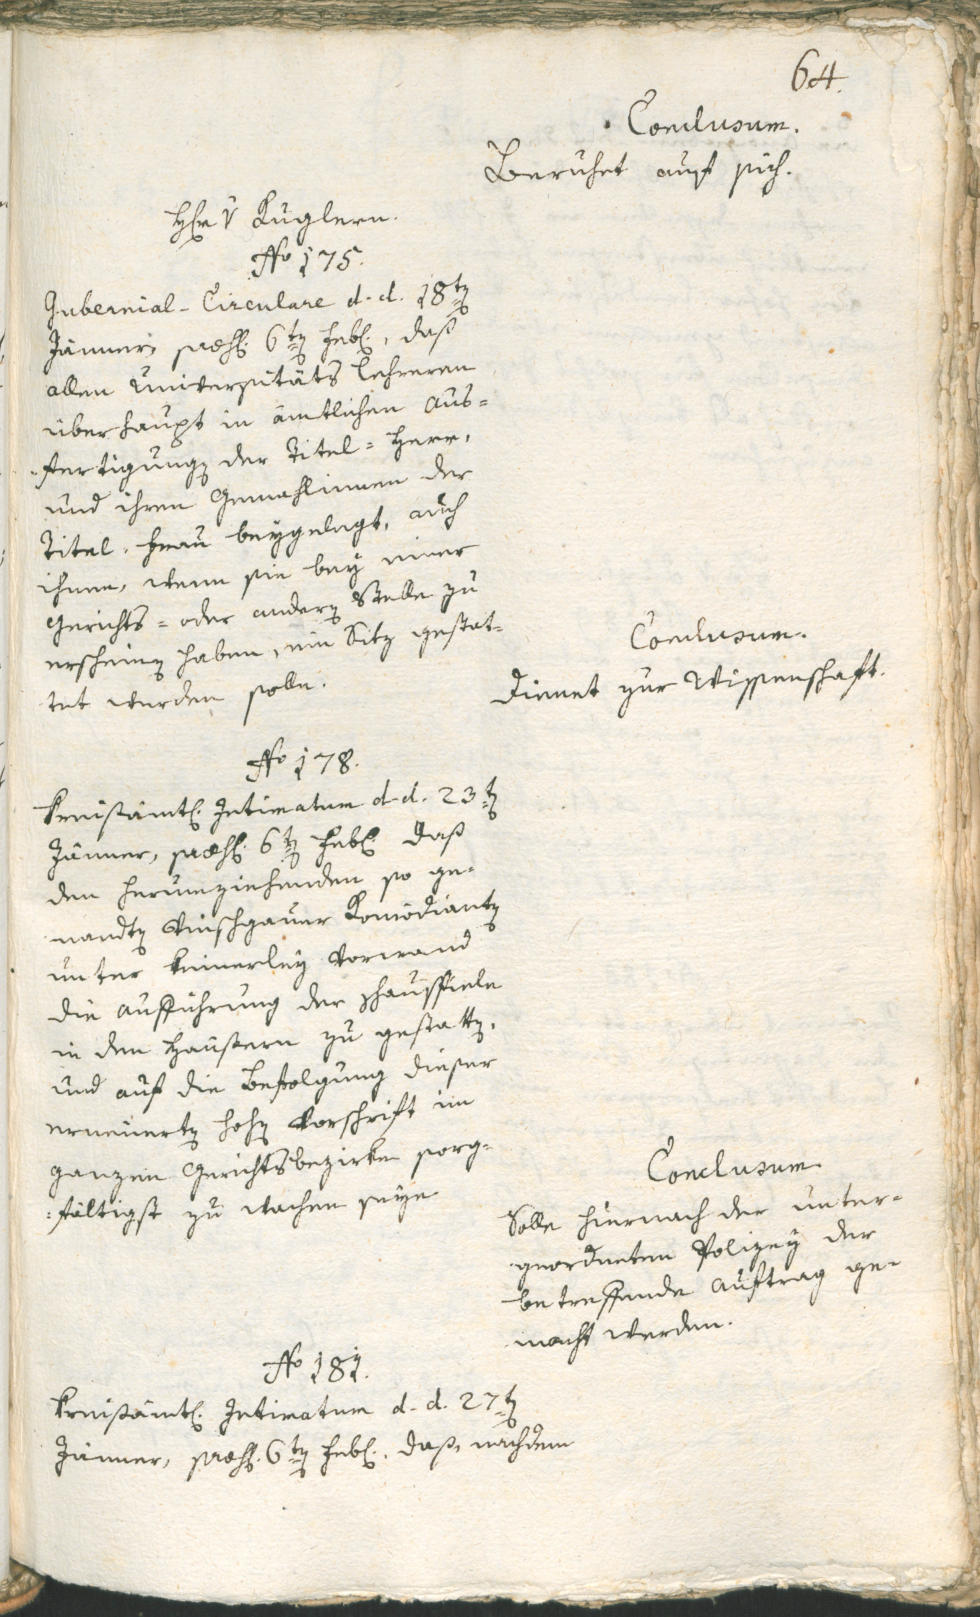 64.
Conclusum.
Beruhet auf sich.
H: v Kuglern.
No 175.
Gubernial-Circulare d. d. 18tn
Jänner, 6tn Febl., daß
allen Universitäts Lehreren
überhaupt in ämtlichen Aus-
fertigungn der Titel-Herr,
und ihren Gemahlinnen der
Titel-Frau beygelegt, auch
ihnen, wenn sie bey einer
Gerichts- oder andern Stelle zu
erscheinn haben, ein Sitz gestat-
tet werden solle.
Conclusum.
Dienet zur Wissenschaft.
No 178.
Kreisämtl. Intimatum d. d. 23tn
Jänner, 6tn Febl. daß
den herumziehenden so ge-
nandtn Vinschgauer Komödiantn
unter keinerley Vorwand
die Aufführung der Schauspiele
in den Häusern zu gestattn,
und auf die Befolgung dieser
erneuertn hohn Vorschrift im
ganzen Gerichtsbezirke sorg-
fältigst zu wachen seye.
Conclusum.
Solle hiernach der unter-
geordneten Polizey der
betreffende Auftrag ge-
macht werden.
No 181.
Kreisämtl. Intimatum d. d. 27tn
Jänner, 6tn Febl. daß, nachdem